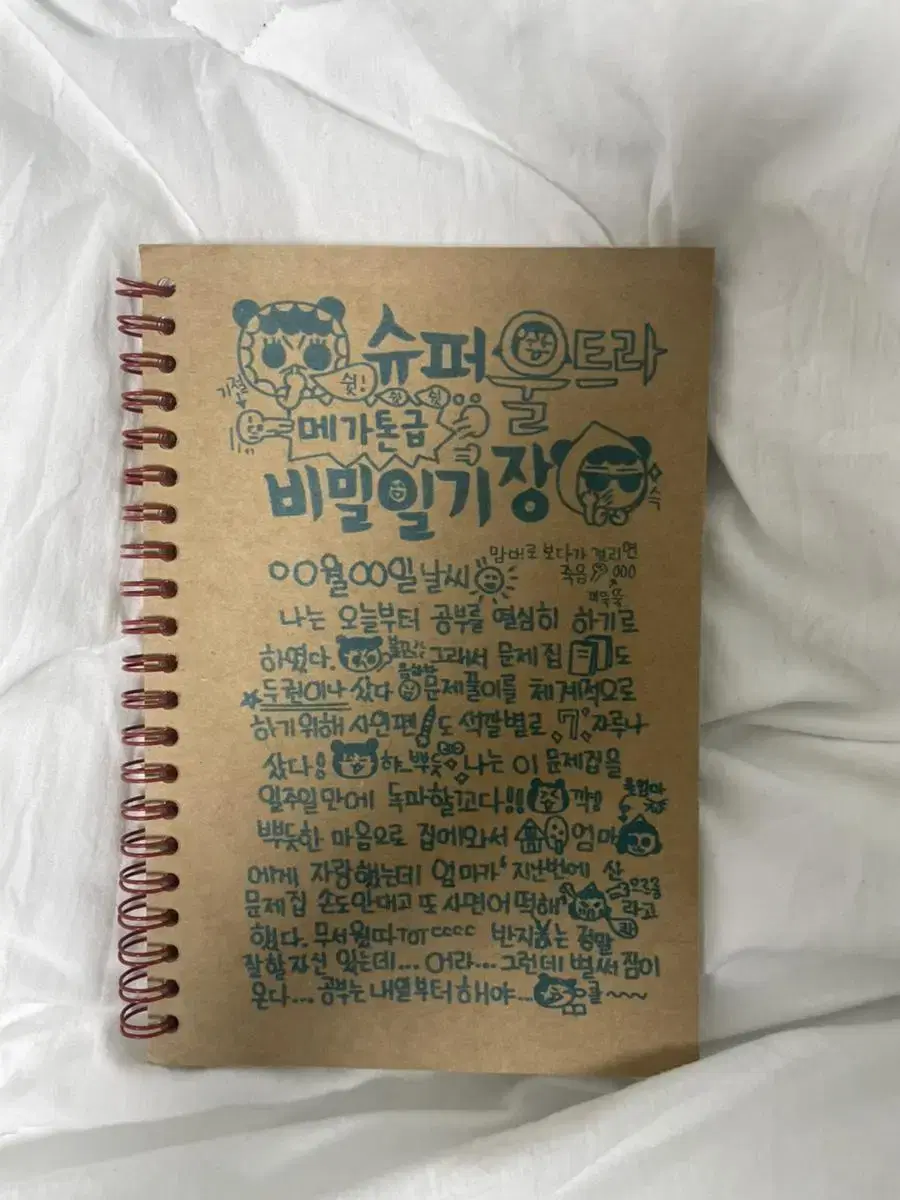 슈퍼울트라
기절
쉿!
쉿 쉿
메가톤급
비밀일기장
슥
맘대로 보다가 걸리면
죽음 000
OO월OO일 날씨
나는 오늘부터 공부를 열심히 하기로
하였다. 그래서 문제집 도
두권이나 샀다 문제풀이를 체계적으로
하기위해 사인펜도 색깔별로 7자루나
샀다! 햐_뿌듯 나는 이 문제집을
일주일만에 독파할꼬다!!
뿌듯한 마음으로 집에와서 엄마
에게 자랑했는데 엄마가 '지난번에 산
문제집 손도안대고 또 사면어떡해' 라고
했다. 무서웠따ToTㄷㄷㄷㄷ 반지는 정말
잘할자신 있는데... 어라... 그런데 벌써 잠이
온다... 공부는 내일부터 해야... 쿨~~~